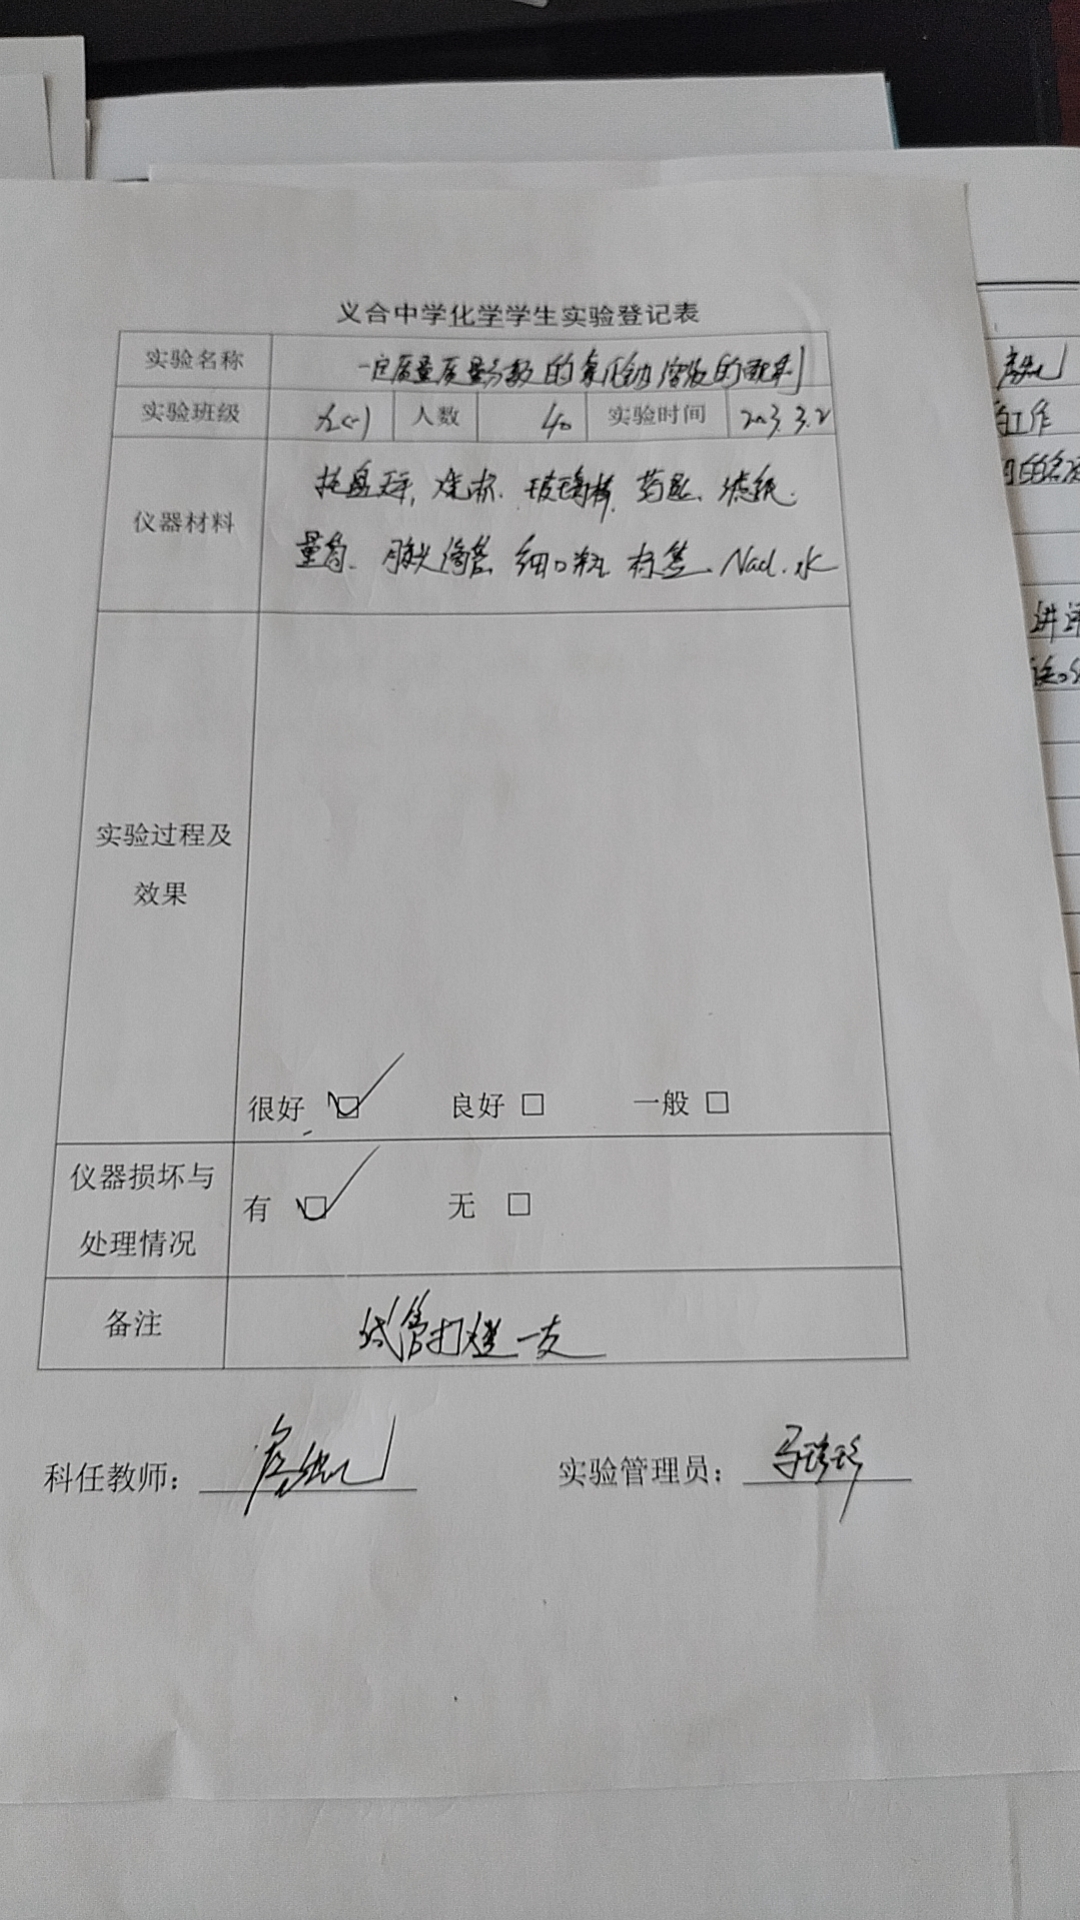 义合中学化学学生实验登记表
实验名称 一定质量质量分数的氯化钠溶液的配制
实验班级 九(一) 人数 40 实验时间 2023.3.2
仪器材料
托盘天平, 烧杯. 玻璃棒, 药匙、滤纸.
量筒、胶头滴管 细口瓶 标签、Nacl. 水
实验过程及
效果
很好 ☑ 良好 □ 一般 □
仪器损坏与
处理情况
有 ☑ 无 □
备注 试管打碎一支
科任教师：
实验管理员：马珍珍
工作